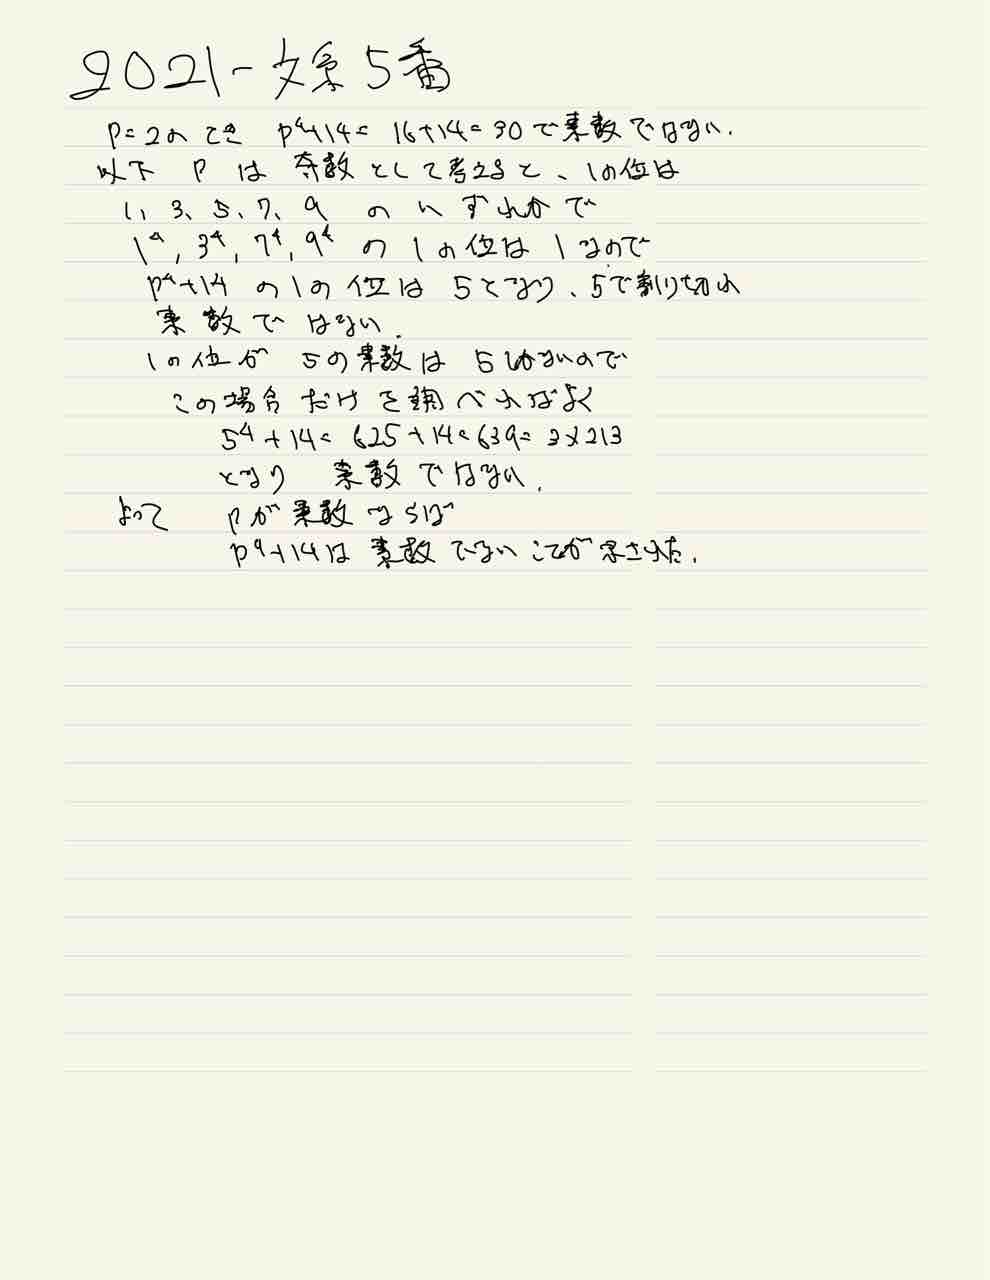 2021-文系5番
P=2のとき P⁴+14= 16+14=30で素数ではない.
以下 Pは 奇数として考えると、1の位は
1、3、5、7、9 のいずれかで
1⁴, 3⁴, 7⁴, 9⁴ の 1の位は 1なので
P⁴+14 の1の位は 5となり、5で割り切れ
素数ではない.
1の位が 5の素数は 5しかないので
この場合だけを調べればよく
5⁴+14= 625+14=639= 3×213
となり 素数ではない.
よって Pが素数ならば
P⁴+14は 素数でないことが示された.